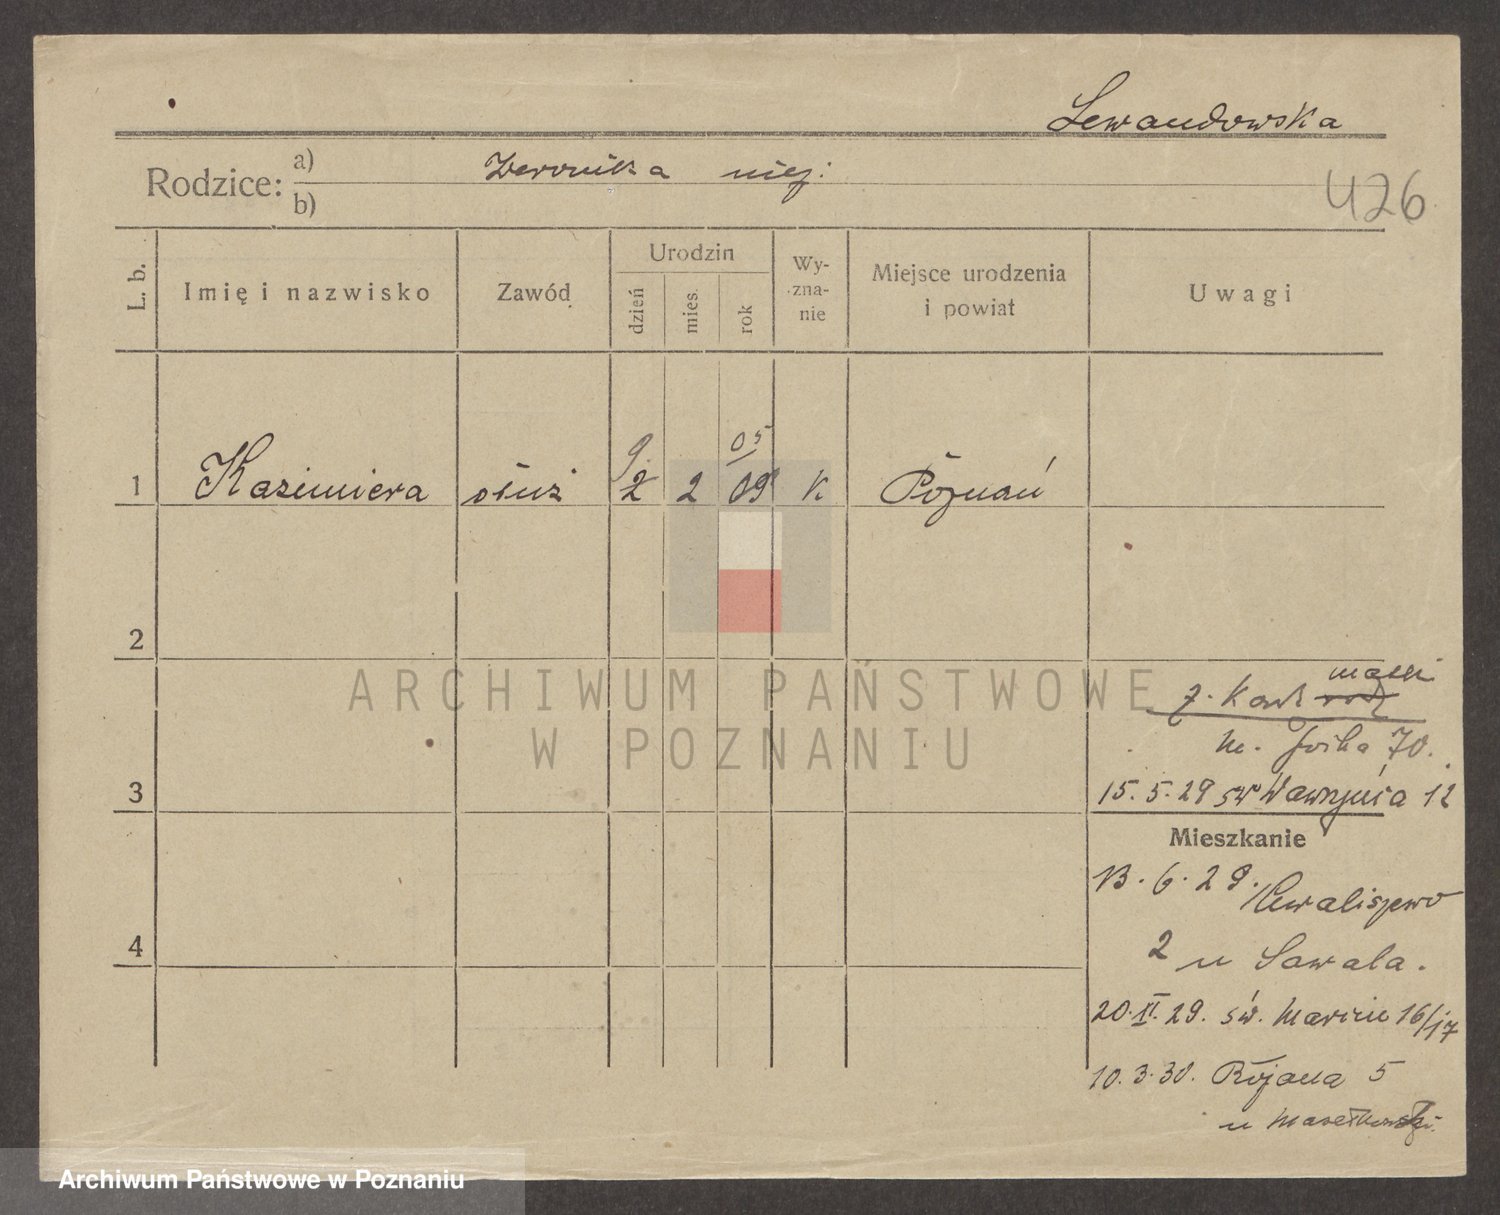 Lewandowska
Rodzice: a) Weronika niez.
b)
426
L. b.
Imię i nazwisko
Zawód
Urodzin
dzień
mies.
rok
Wy-
zna-
nie
Miejsce urodzenia
i powiat
Uwagi
9.
05
1 Kazimiera służ 2 2 09 K Poznań
2
matki
z. Kart
m. 70.
3
15. 5. 29 św Wawrzyńca 12
Mieszkanie
13. 6. 29.
Chwaliszewo
2 u Sawala.
4
20. XI. 29. św. Marcin 16/17
10. 3. 30. Różana 5
u
ARCHIWUM PAŃSTWOWE
W POZNANIU
Archiwum Państwowe w Poznaniu